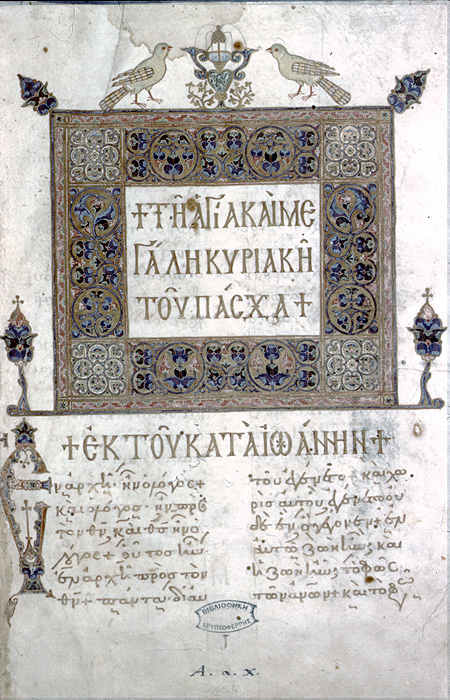 +ΤΗ ΑΓΙΑ ΚΑΙ ΜΕ
ΓΑΛΗ ΚΥΡΙΑΚΗ
ΤΟΥ ΠΑΣΧΑ+
+ΕΚ ΤΟΥ ΚΑΤΑ ΙΩΑΝΝΗΝ+
Ἐν ἀρχῆ ἦν ὁ λόγος+
καὶ ὁ λόγος ἦν πρὸς
τὸν θν καὶ θς ἦν ὁ
λόγος+ οὗτος ἦν
ἐν ἀρχῆ πρὸς τὸν
θν+ πάντα δι αὐ
τοῦ ἐγένετο+ καὶ χω
ρὶς αὐτοῦ ἐγένετο οὐ
δὲ ἓν ὃ γέγονεν+ ἐν
αὐτῶ ζωὴ ἦν καὶ
ἡ ζωὴ ἦν τὸ φῶς
τῶν ἀνων+ καὶ τὸ φῶς
ΒΙΒΛΙΟΘΗΚΗ
ΚΡΥΠΤΟΦΕΡΡΗΣ
Α. α. Χ.